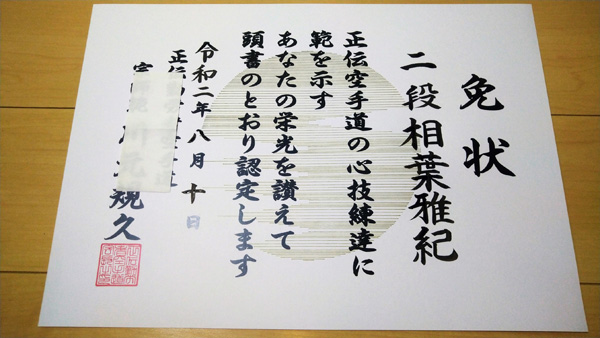 免状
二段 相葉雅紀
正伝空手道の心技練達に
範を示す
あなたの栄光を讃えて
頭書のとおり認定します
令和二年八月十日
正伝
規久